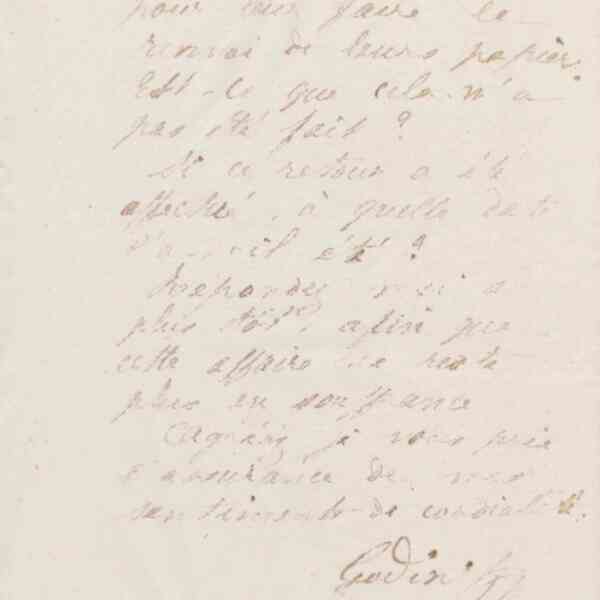 pour leur faire le
renvoi de leurs papiers.
Est-ce que cela n'a
pas été fait ?
Si ce retour a été
effectué, à quelle date
l'a-t-il été ?
Répondez moi au
plus tôt, afin que
cette affaire ne reste
plus en souffrance
Agréez je vous prie
l'assurance de mes
sentiments de cordialité.
Godin